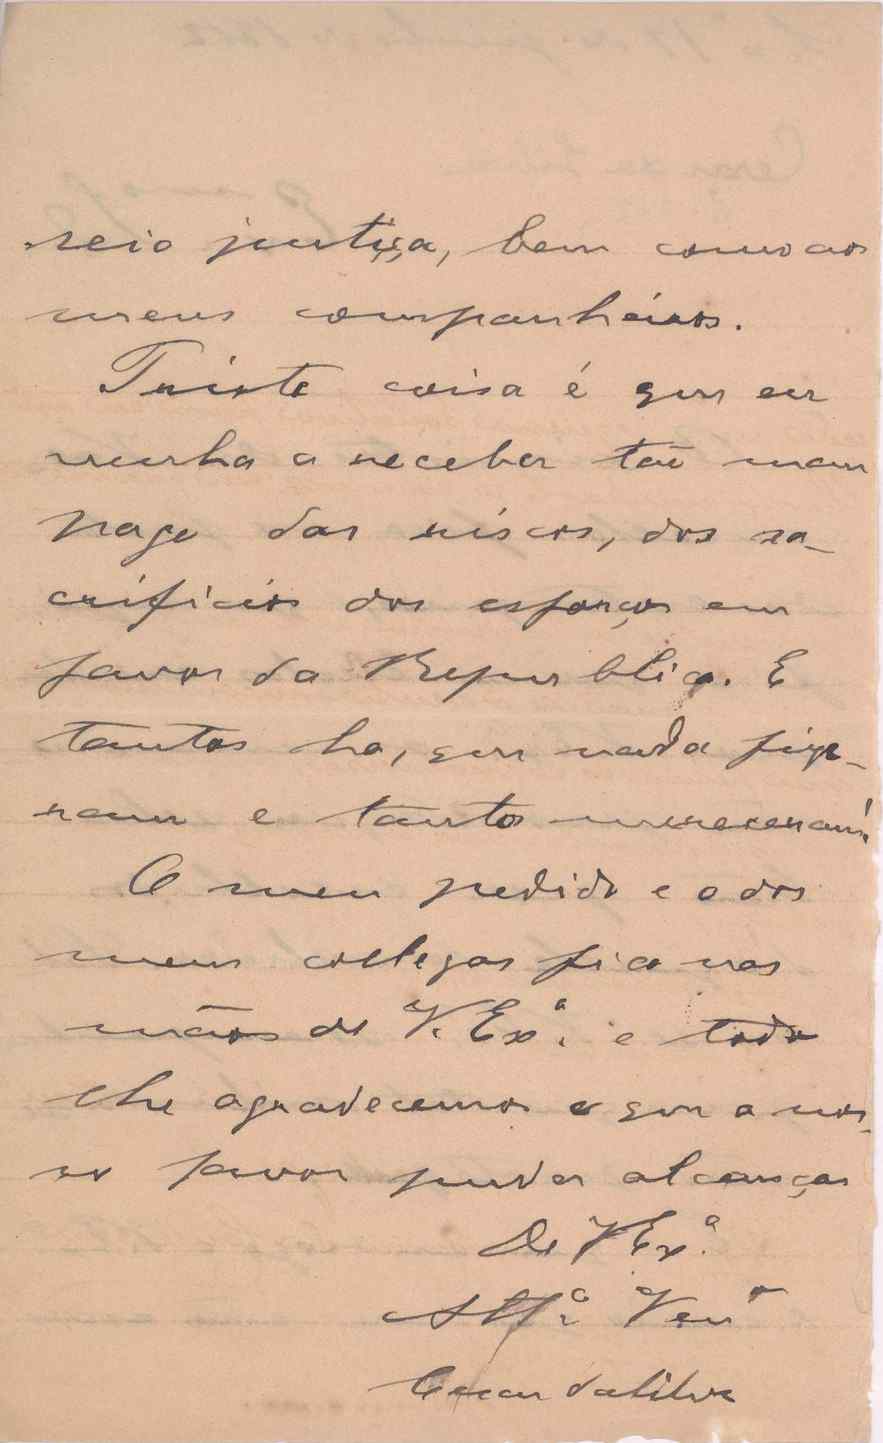 reio justiça, bem como aos
meus companheiros.
Triste coisa é que eu
venha a receber tão mau
pago dos riscos, dos sa-
crificios dos esforços em
favor da Republica. E
tantos ha, que nada fize-
ram e tanto mereceram!
O meu pedido e o dos
meus collegas fica nas
mãos de V. Exª. e todo
lhe agradecemos o que a nos-
so favor puder alcançar
De V Exª.
Attº Venºr
Cesar da Silva